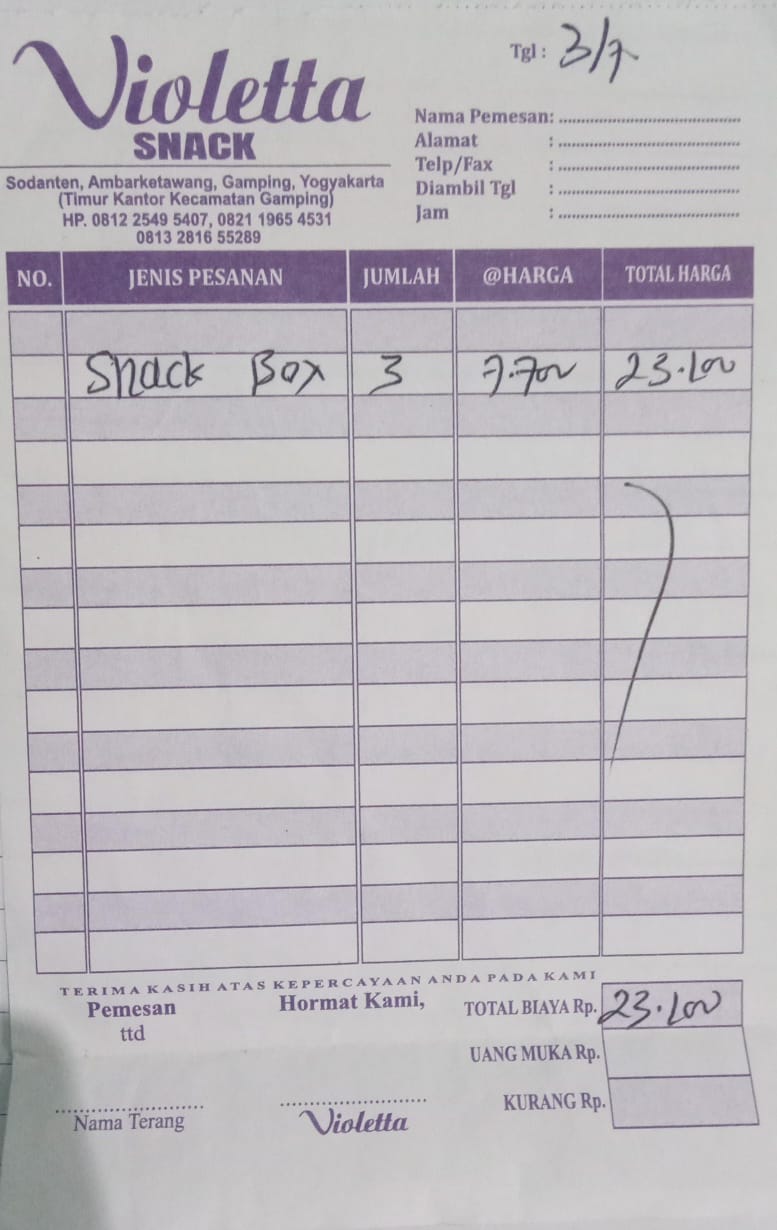 Violetta
SNACK
Sodanten, Ambarketawang, Gamping, Yogyakarta
(Timur Kantor Kecamatan Gamping)
HP. 0812 2549 5407, 0821 1965 4531
0813 2816 55289
Tgl : 3/7
Nama Pemesan: ........................................
Alamat : ........................................
Telp/Fax : ........................................
Diambil Tgl : ........................................
Jam : ........................................
NO. JENIS PESANAN JUMLAH @HARGA TOTAL HARGA
Snack Box 3 7.700 23.100
TERIMA KASIH ATAS KEPERCAYAAN ANDA PADA KAMI
Pemesan Hormat Kami, TOTAL BIAYA Rp. 23.100
ttd
UANG MUKA Rp.
KURANG Rp.
Nama Terang Violetta